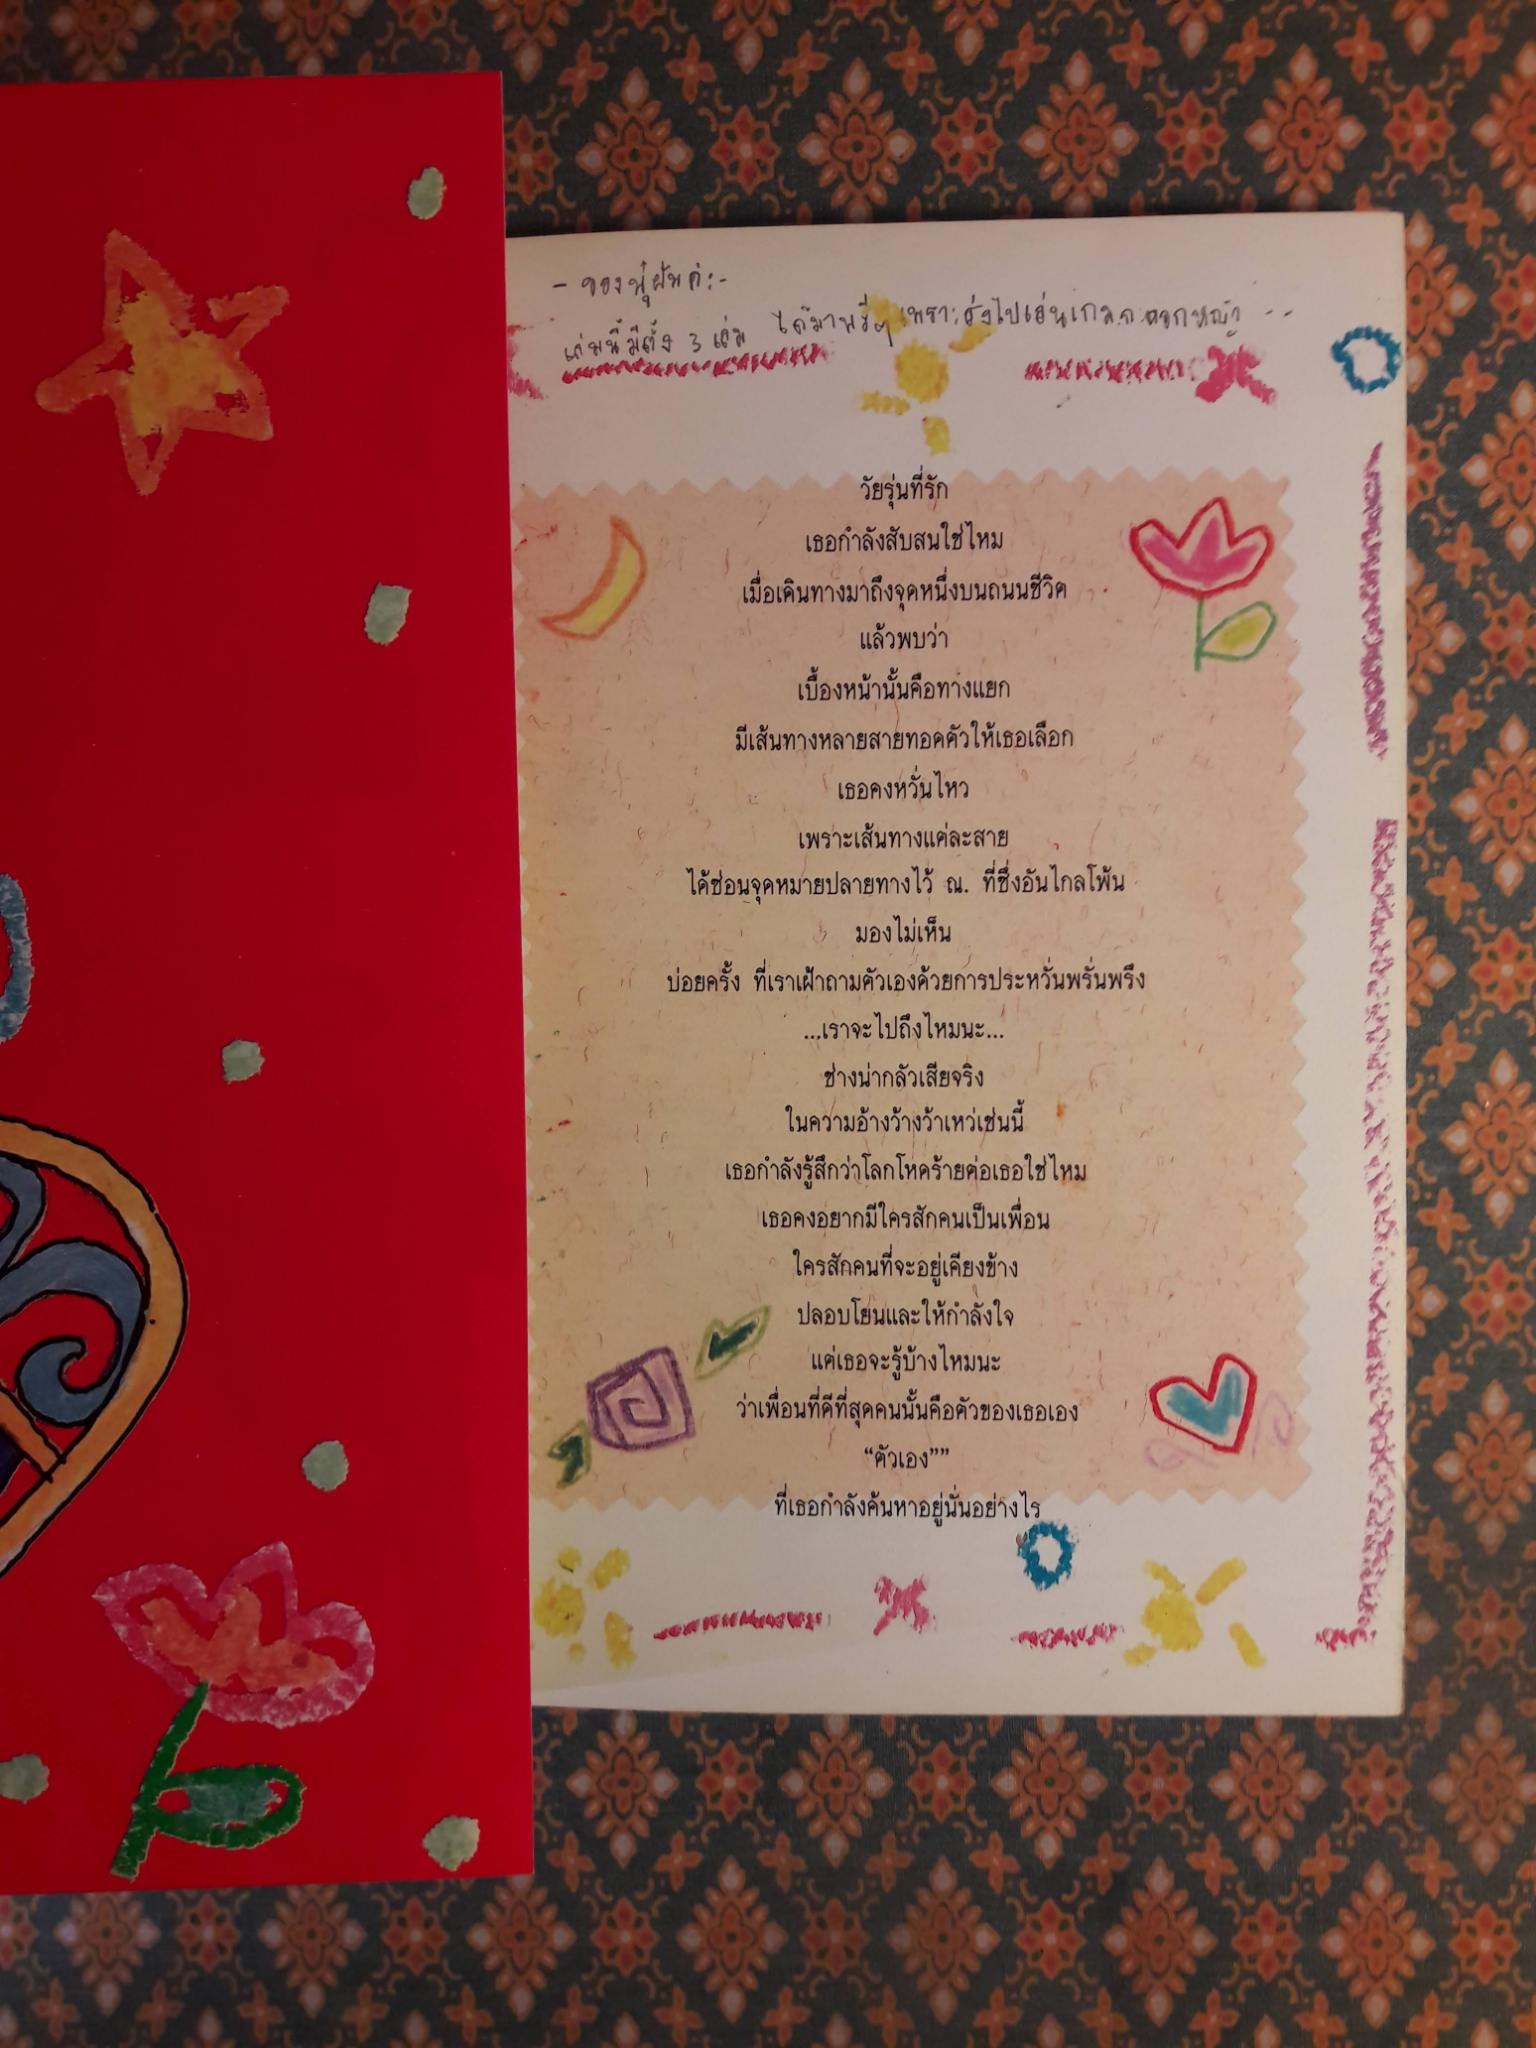 - ของพุ๋ฝันค่ะ -
เล่มนี้มีตั้ง 3 เล่ม ได้มาฟรีๆ เพราะส่งไปเล่นเกม
วัยรุ่นที่รัก
เธอกำลังสับสนใช่ไหม
เมื่อเดินทางมาถึงจุดหนึ่งบนถนนชีวิต
แล้วพบว่า
เบื้องหน้านั้นคือทางแยก
มีเส้นทางหลายสายทอดตัวให้เธอเลือก
เธอคงหวั่นไหว
เพราะเส้นทางแต่ละสาย
ได้ซ่อนจุดหมายปลายทางไว้ ณ. ที่ซึ่งอันไกลโพ้น
มองไม่เห็น
บ่อยครั้ง ที่เราเฝ้าถามตัวเองด้วยการประหวั่นพรั่นพรึง
...เราจะไปถึงไหมนะ...
ช่างน่ากลัวเสียจริง
ในความอ้างว้างว้าเหว่เช่นนี้
เธอกำลังรู้สึกว่าโลกโหดร้ายต่อเธอใช่ไหม
เธอคงอยากมีใครสักคนเป็นเพื่อน
ใครสักคนที่จะอยู่เคียงข้าง
ปลอบโยนและให้กำลังใจ
แต่เธอจะรู้บ้างไหมนะ
ว่าเพื่อนที่ดีที่สุดคนนั้นคือตัวของเธอเอง
“ตัวเอง””
ที่เธอกำลังค้นหาอยู่นั่นอย่างไร